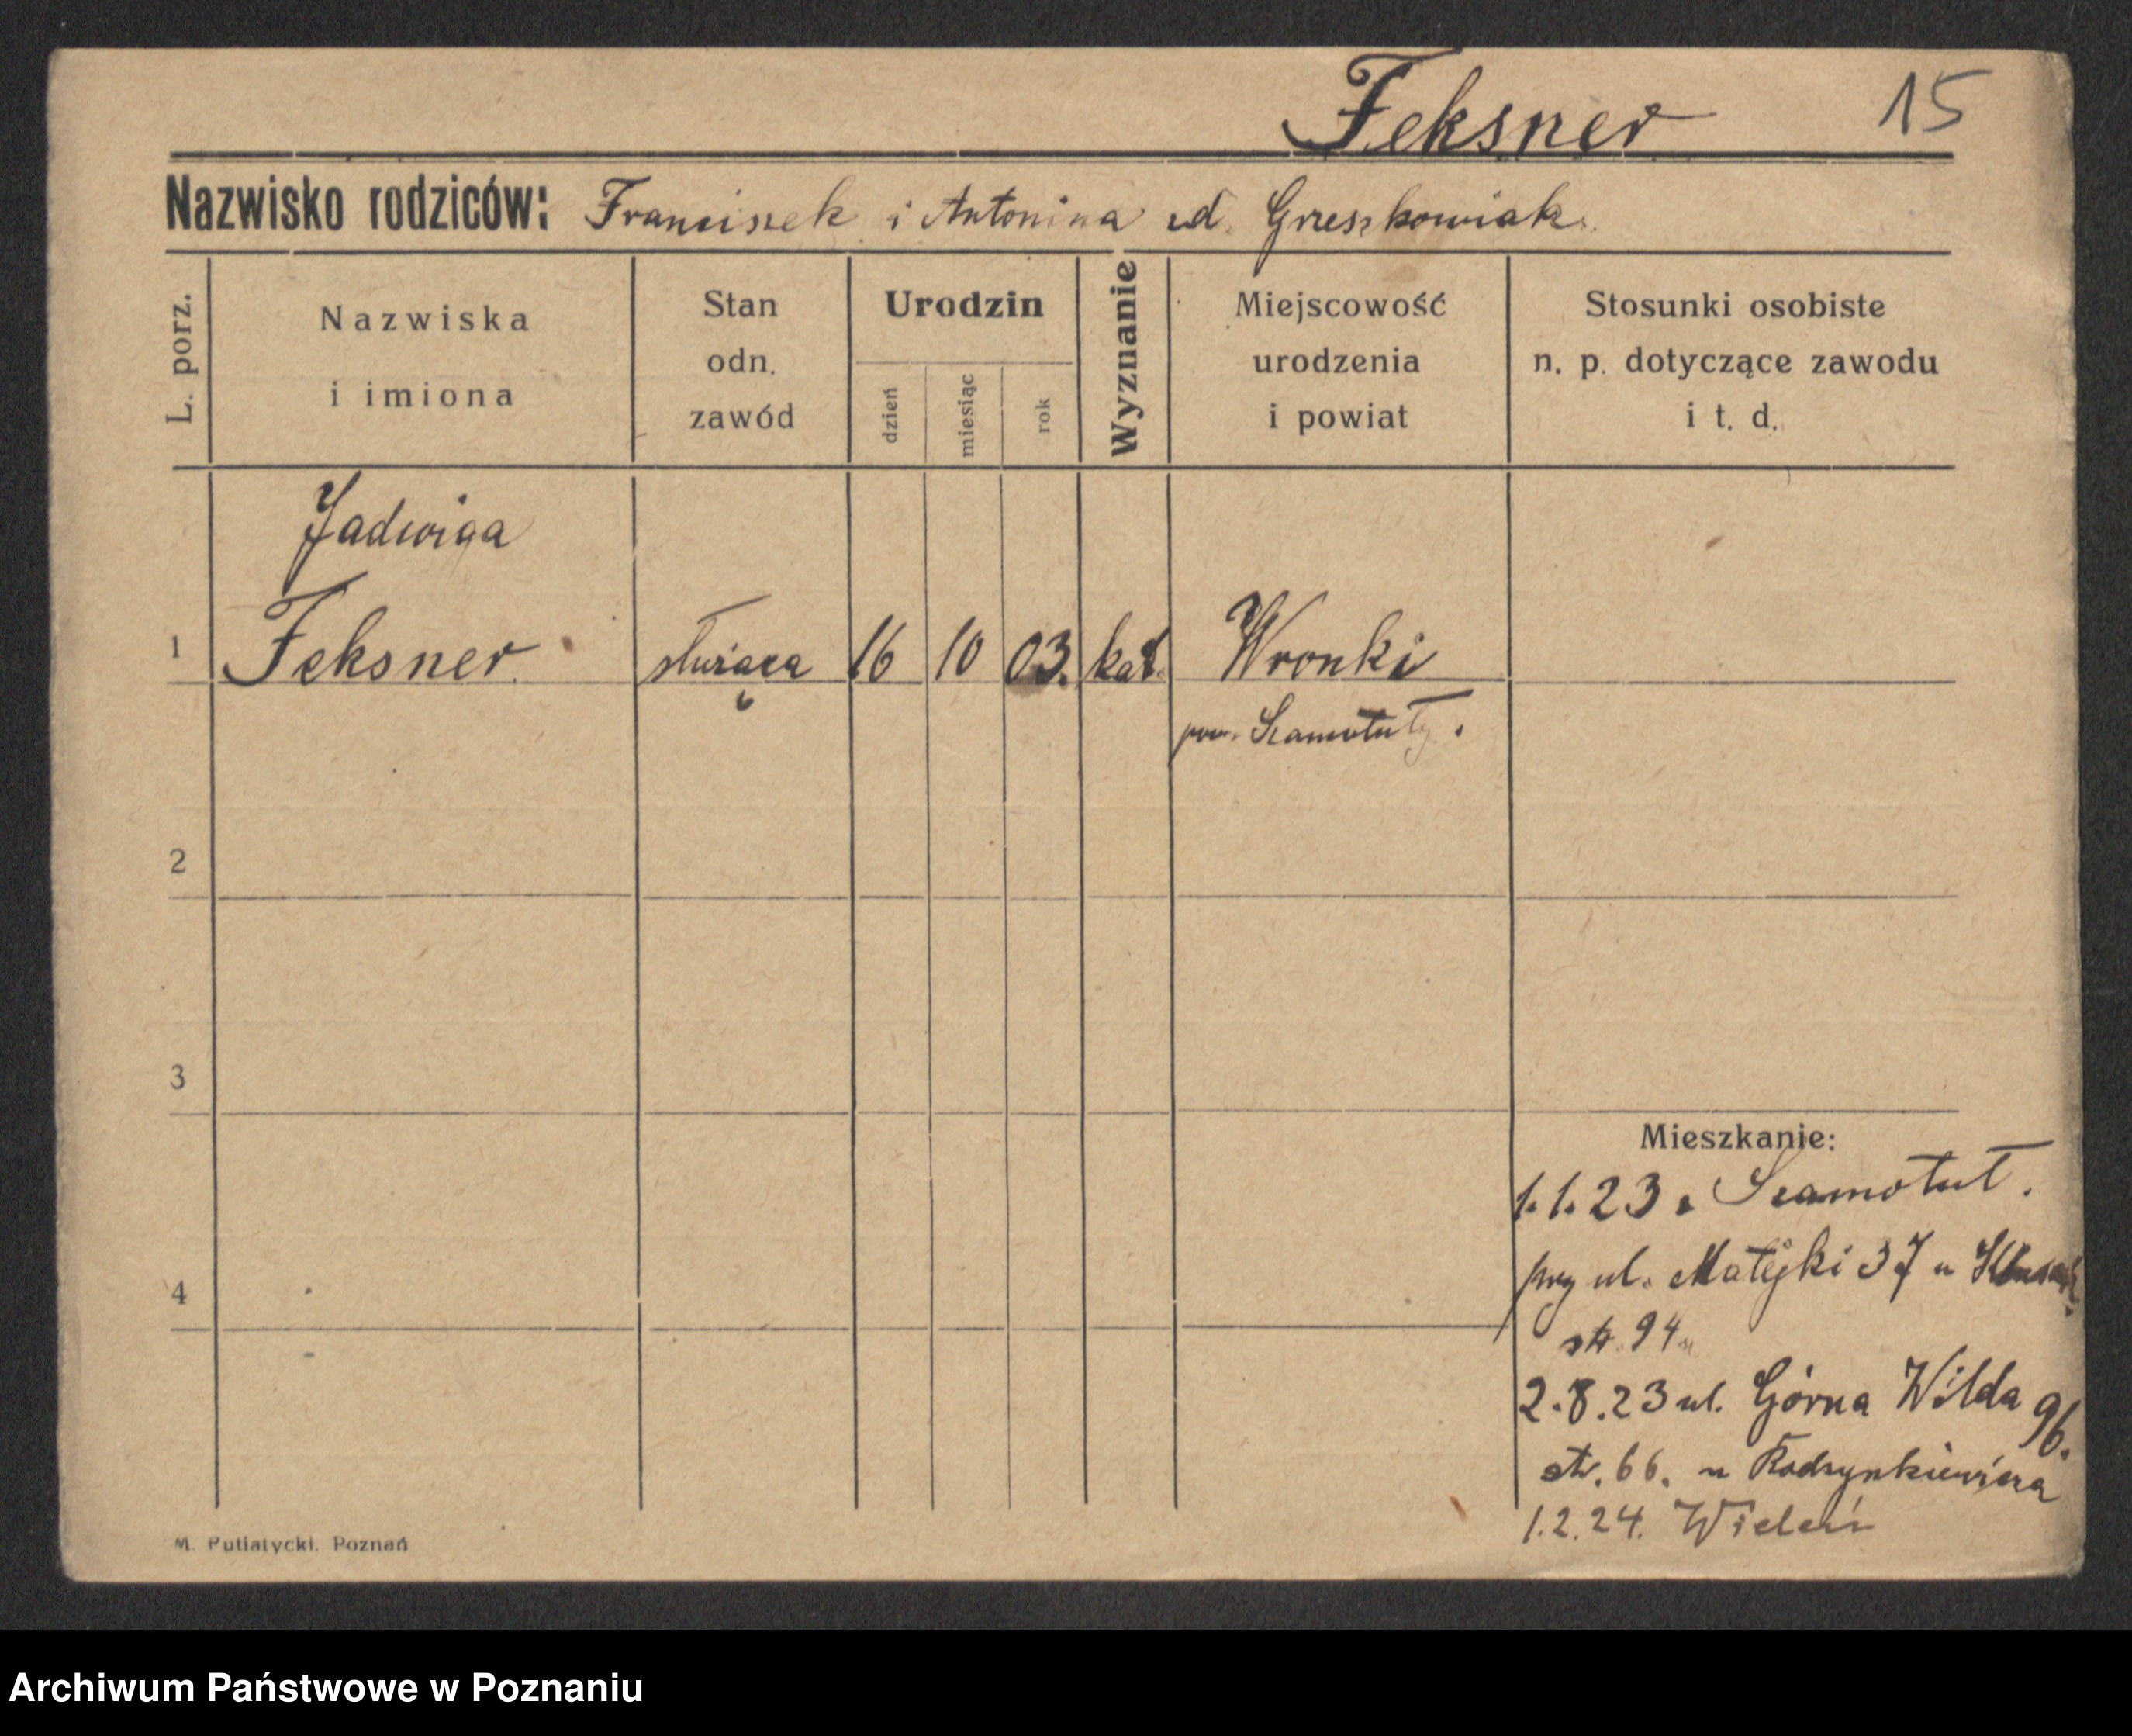 Feksner 15
Nazwisko rodziców: Franciszek i Antonina zd. Grzeszkowiak
L. porz.
Nazwiska
i imiona
Stan
odn.
zawód
Urodzin
dzień
miesiąc
rok
Wyznanie
Miejscowość
urodzenia
i powiat
Stosunki osobiste
n. p. dotyczące zawodu
i t. d.
Jadwiga
1 Feksner służąca 16 10 03. kat. Wronki
pow. Szamotuły.
2
3
Mieszkanie:
1.1.23 z Szamotuł.
przy ul. Matejki 37 u
4
str. 94
2.8.23 ul. Górna Wilda 96.
str. 66. u Rodzynkiewicza
1.2.24. Wieleń
M. Putiatycki. Poznań
Archiwum Państwowe w Poznaniu